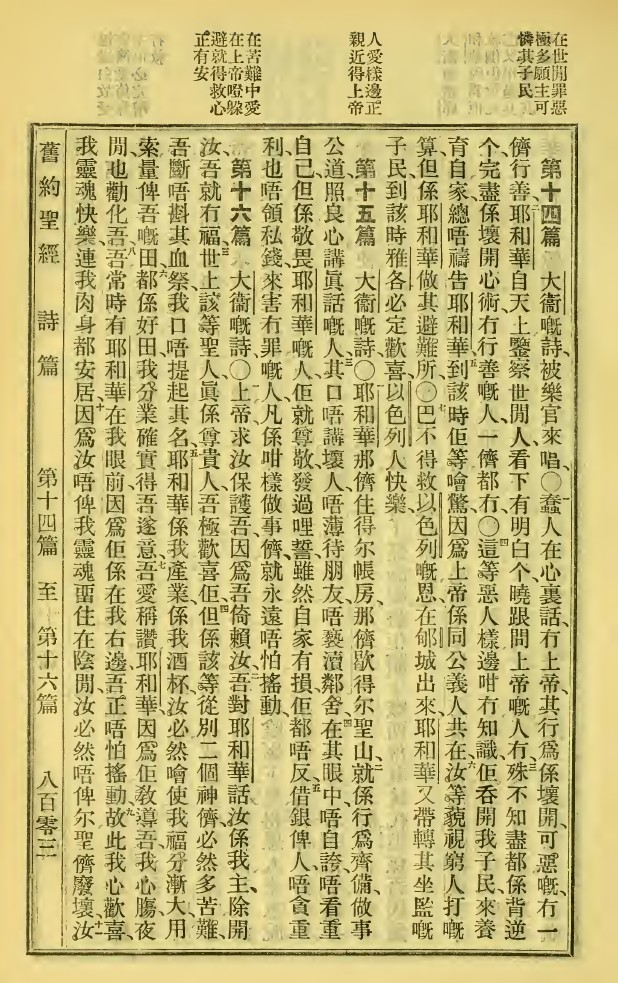 在世閒罪惡
極多願主可
憐其子民
人愛樣邊正
親近得上帝
在苦難中愛
在上帝嶝躲
避就得救心
正有安
第十四篇 大衞嘅詩、被樂官來唱、〇蠢人在心裏話、冇上帝、其行爲係壞開、可惡嘅、冇一
儕行善、二耶和華自天上鑒察世閒人、看下有明白个曉跟問上帝嘅人冇、三殊不知盡都係背逆
个完盡係壞開心術、冇行善嘅人、一儕都冇、〇四這等惡人樣邊咁冇知識、佢吞開我子民、來養
育自家、總唔禱告耶和華、五到該時佢等噲驚、因爲上帝係同公義人共在、六汝等藐視窮人打嘅
算、但係耶和華做其避難所、〇七巴不得救以色列嘅恩、在郇城出來、耶和華又帶轉其坐監嘅
子民、到該時雅各必定歡喜、以色列人快樂、
第十五篇 大衞嘅詩〇一耶和華那儕住得尔帳房、那儕歇得尔聖山、二就係行爲齊備、做事
公道、照良心講眞話嘅人、三其口唔講壞人、唔薄待朋友、唔褻瀆鄰舍、四在其眼中、唔自誇唔看重
自己、但係敬畏耶和華嘅人、佢就尊敬、發過哩誓、雖然自家有損、佢都唔反、五借銀俾人、唔貪重
利、也唔領私錢來害冇罪嘅人、凡係咁樣做事儕、就永遠唔怕搖動、
第十六篇 大衞嘅詩〇一上帝求汝保護吾、因爲吾倚賴汝、二吾對耶和華話、汝係我主、除開
汝吾就冇福、三世上該等聖人、眞係尊貴人、吾極歡喜佢、四但係該等從別二個神儕、必然多苦難、
吾斷唔斟其血祭、我口唔提起其名、五耶和華係我產業、係我酒杯、汝必然噲使我福分漸大、六用
索量俾吾嘅田、都係好田、我分業確實得吾遂意、七吾愛稱讚耶和華、因爲佢敎導吾、我心膓夜
閒也勸化吾、八吾常時有耶和華在我眼前、因爲佢係在我右邊、吾正唔怕搖動、九故此我心歡喜、
我靈魂快樂、連我肉身都安居、十因爲汝唔俾我靈魂畱住在陰閒、汝必然唔俾尔聖儕廢壞、十一汝
舊約聖經 詩篇 第十四篇 至 第十六篇 八百零三